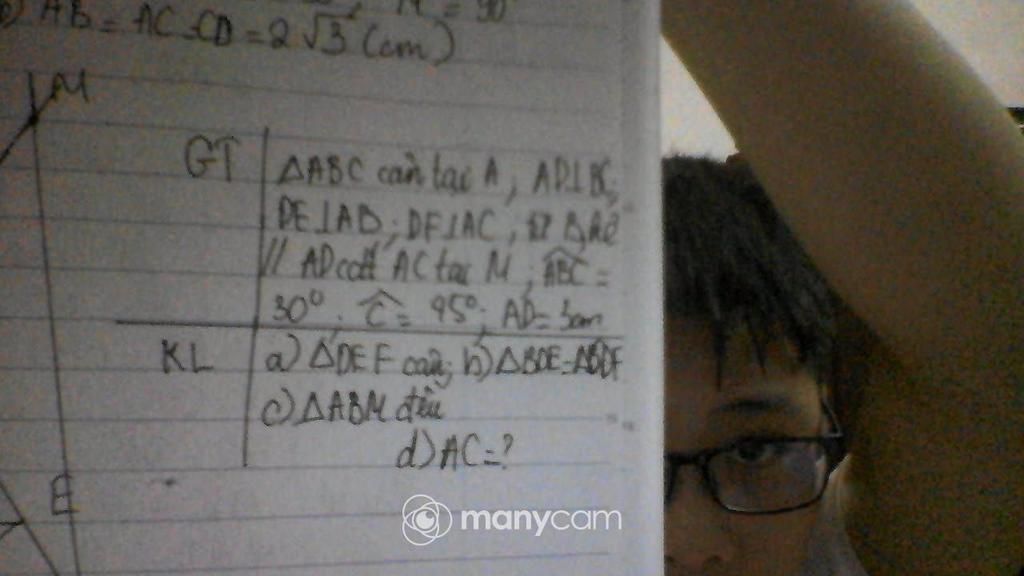 b) AB = AC = CD = 2√3 (cm)
M
GT
ΔABC cân tại A, AD⊥BC,
DE⊥AB; DF⊥AC,
// AD cắt AC tại M; ABC =
30°; C = 45°; AD = 3cm
KL
a) ΔDEF cân; b) ΔBDE=
c) ΔABM đều
d) AC=?
E
manycam